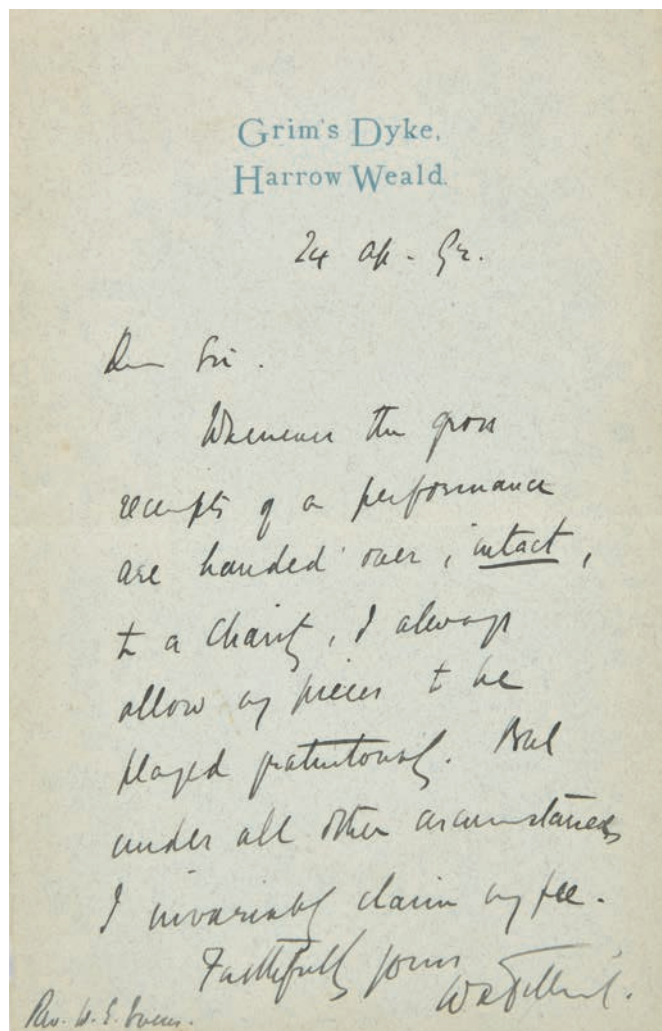 Grim's Dyke,
Harrow Weald.
24 Ap. 92.
Dear Sir.
Whenever the gross
receipts of a performance
are handed over, intact,
to a charity, I always
allow my pieces to be
played gratuitously. But
under all other circumstances
I invariably claim my fee.
Faithfully yours
WSGilbert.
Rev. W. E. Evans.